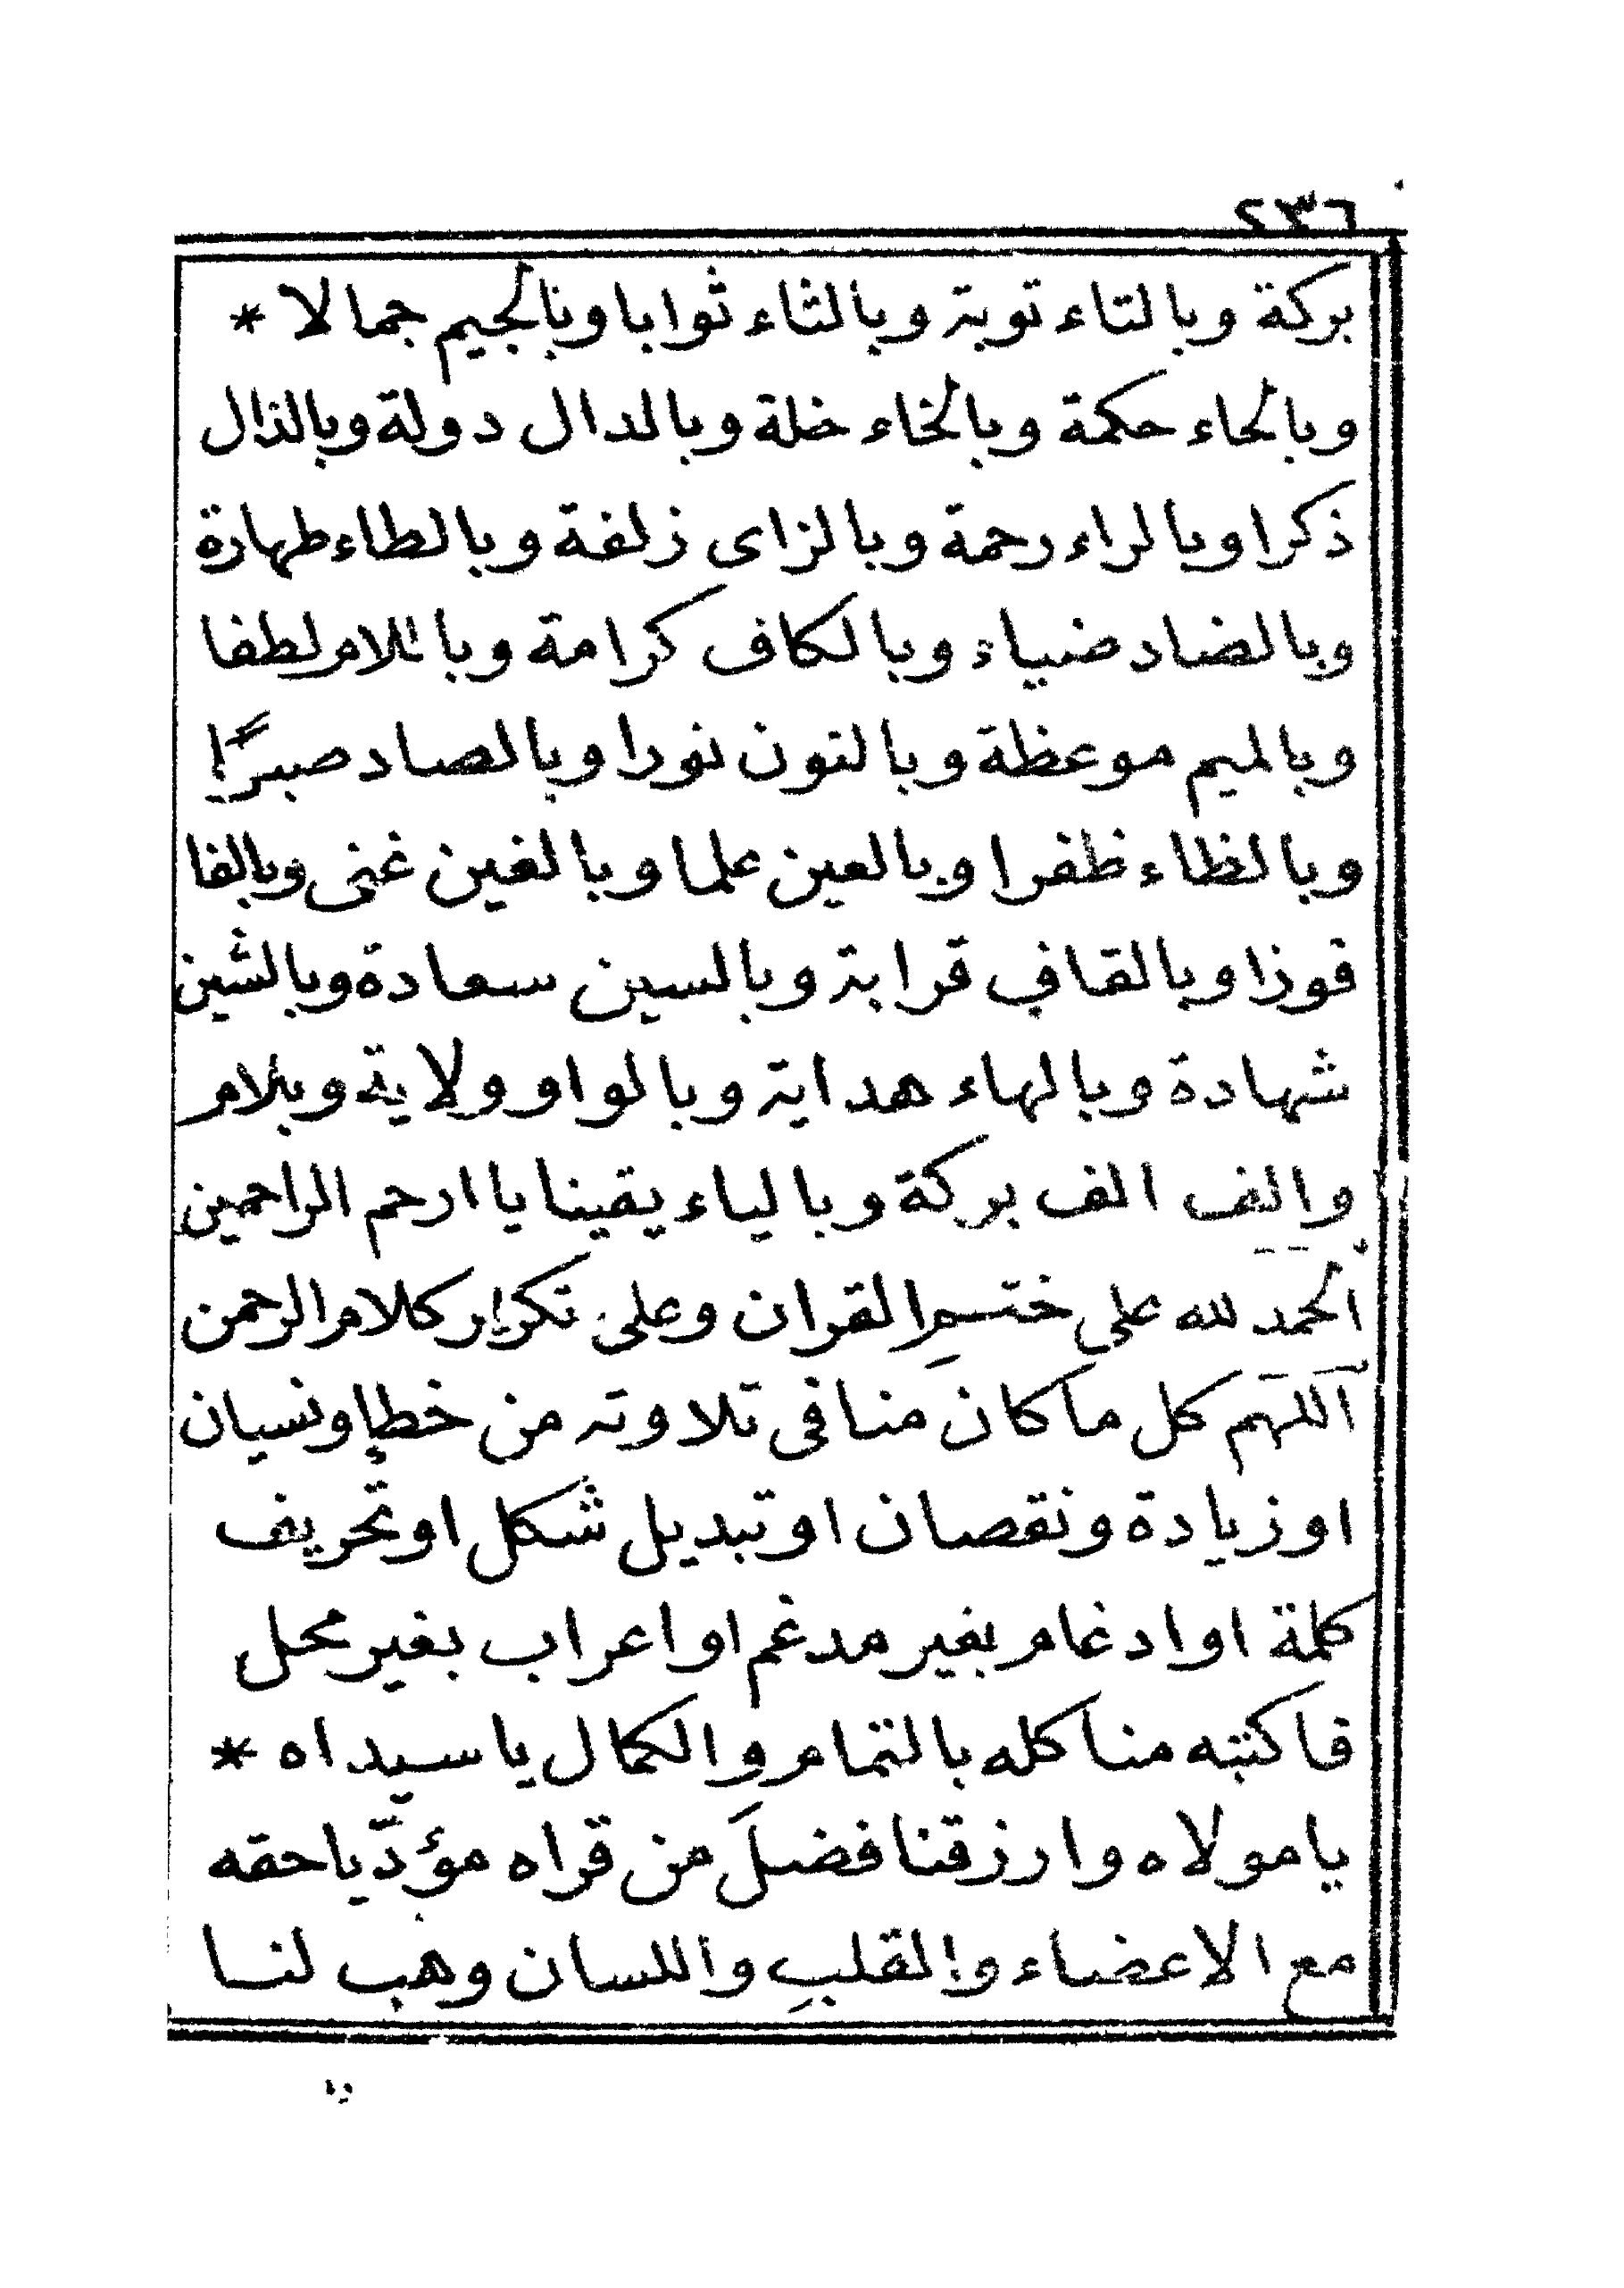 ٢٣٦
بركة وبالتاء توبة وبالثاء ثوابا وبالجيم جمالا *
وبالحاء حكمة وبالخاء خلة وبالدال دولة وبالذال
ذكرا وبالراء رحمة وبالزاى زلفة وبالطاء طهارة
وبالضاد ضياء وبالكاف كرامة وباللام لطفا
وبالميم موعظة وبالنون نورا وبالصاد صبرًا
وبالظاء ظفرا وبالعين علما وبالغين غنى وبالفا
فوزا وبالقاف قرابة وبالسين سعادة وبالشين
شهادة وبالهاء هداية وبالواو ولاية وبلام
والف الف بركة وبالياء يقينا يا ارحم الراحمين
الحمد لله على ختم القران وعلى تكرار كلام الرحمن
اللهم كل ما كان منا فى تلاوته من خطإ ونسيان
او زيادة ونقصان او تبديل شكل او تحريف
كلمة او ادغام بغير مدغم او اعراب بغير محل
فاكتبه منا كله بالتمام والكمال يا سيداه *
يا مولاه وارزقنا فضلَ من قراه مؤدّيا حقه
مع الاعضاء والقلبِ واللسان وهب لنا